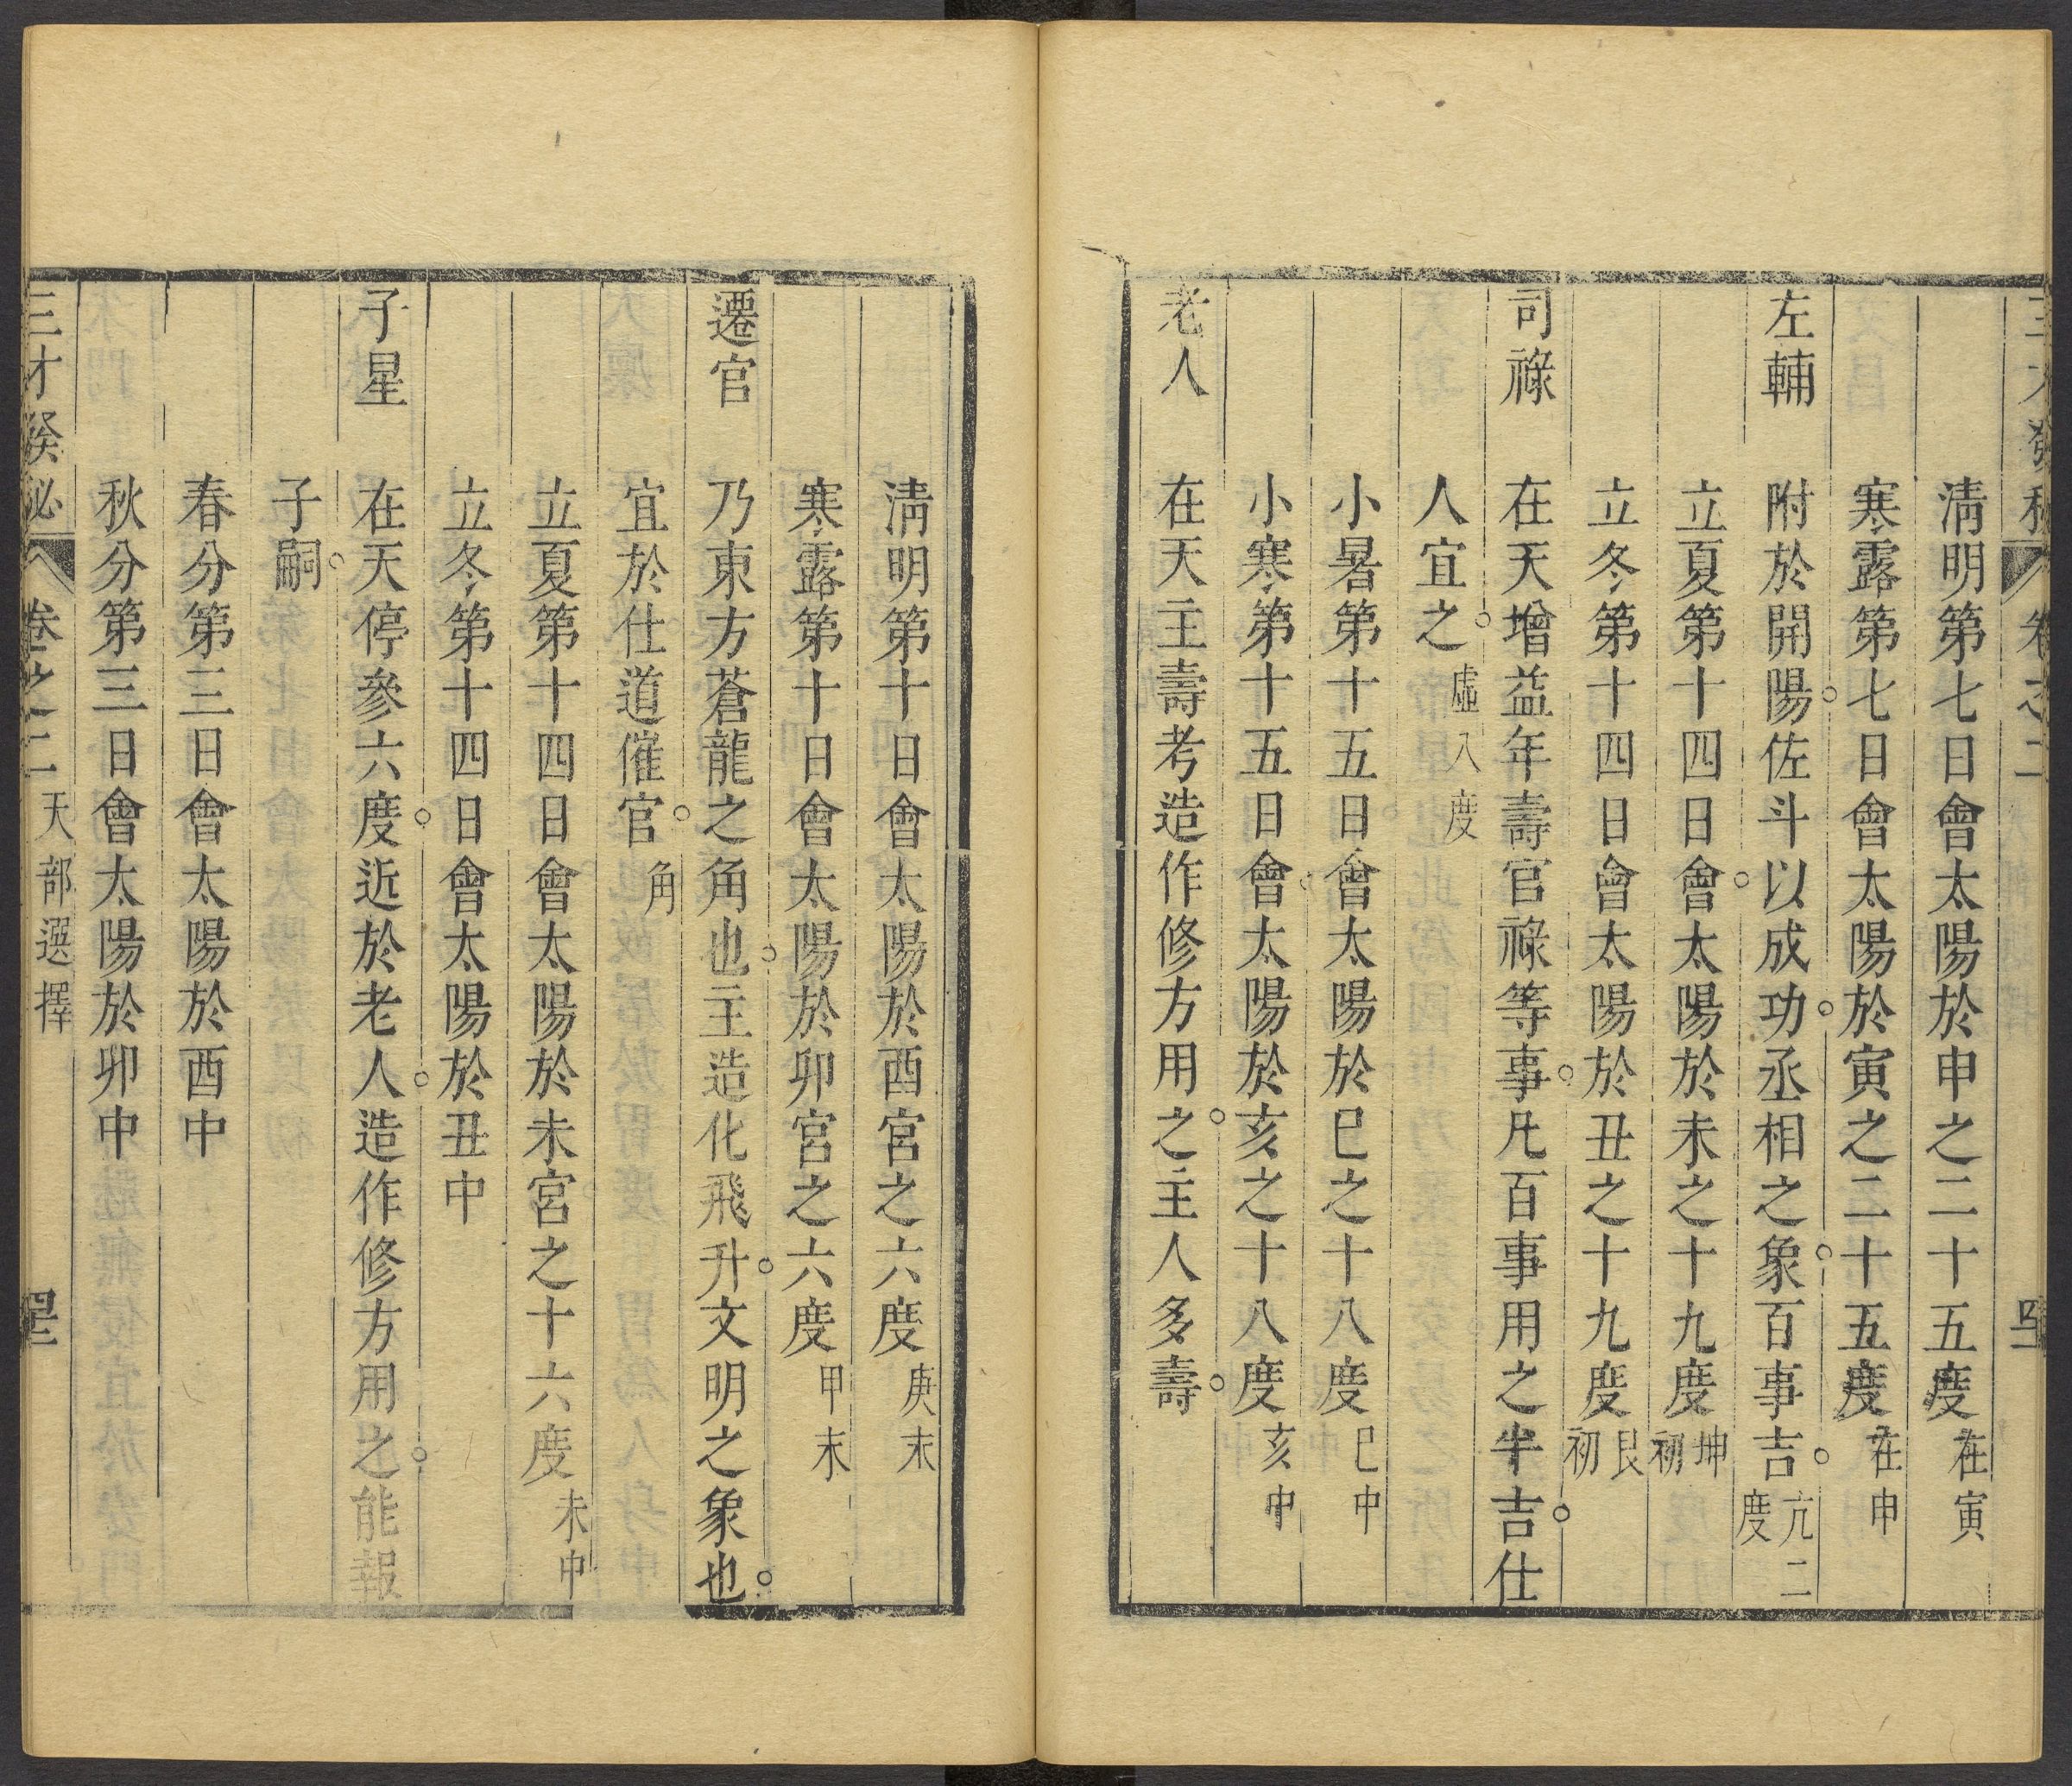 三才發秘 卷之二
清明第七日會太陽於申之二十五度在寅
寒露第七日會太陽於寅之二十五度在申
左輔 附於開陽佐斗以成功丞相之象百事吉亢二度
立夏第十四日會太陽於未之十九度坤初
立冬第十四日會太陽於丑之十九度艮初
司祿 在天增益年壽官祿等事凡百事用之半吉仕
人宜之虛八度
小暑第十五日會太陽於巳之十八度巳中
小寒第十五日會太陽於亥之十八度亥中
老人 在天主壽考造作修方用之主人多壽
清明第十日會太陽於酉宮之六度庚末
寒露第十日會太陽於卯宮之六度甲末
遷官 乃東方蒼龍之角也主造化飛升文明之象也
宜於仕道催官角
立夏第十四日會太陽於未宮之十六度未中
立冬第十四日會太陽於丑中
子星 在天停參六度近於老人造作修方用之能報
子嗣
春分第三日會太陽於酉中
秋分第三日會太陽於卯中
三才發秘 卷之二 天部選擇